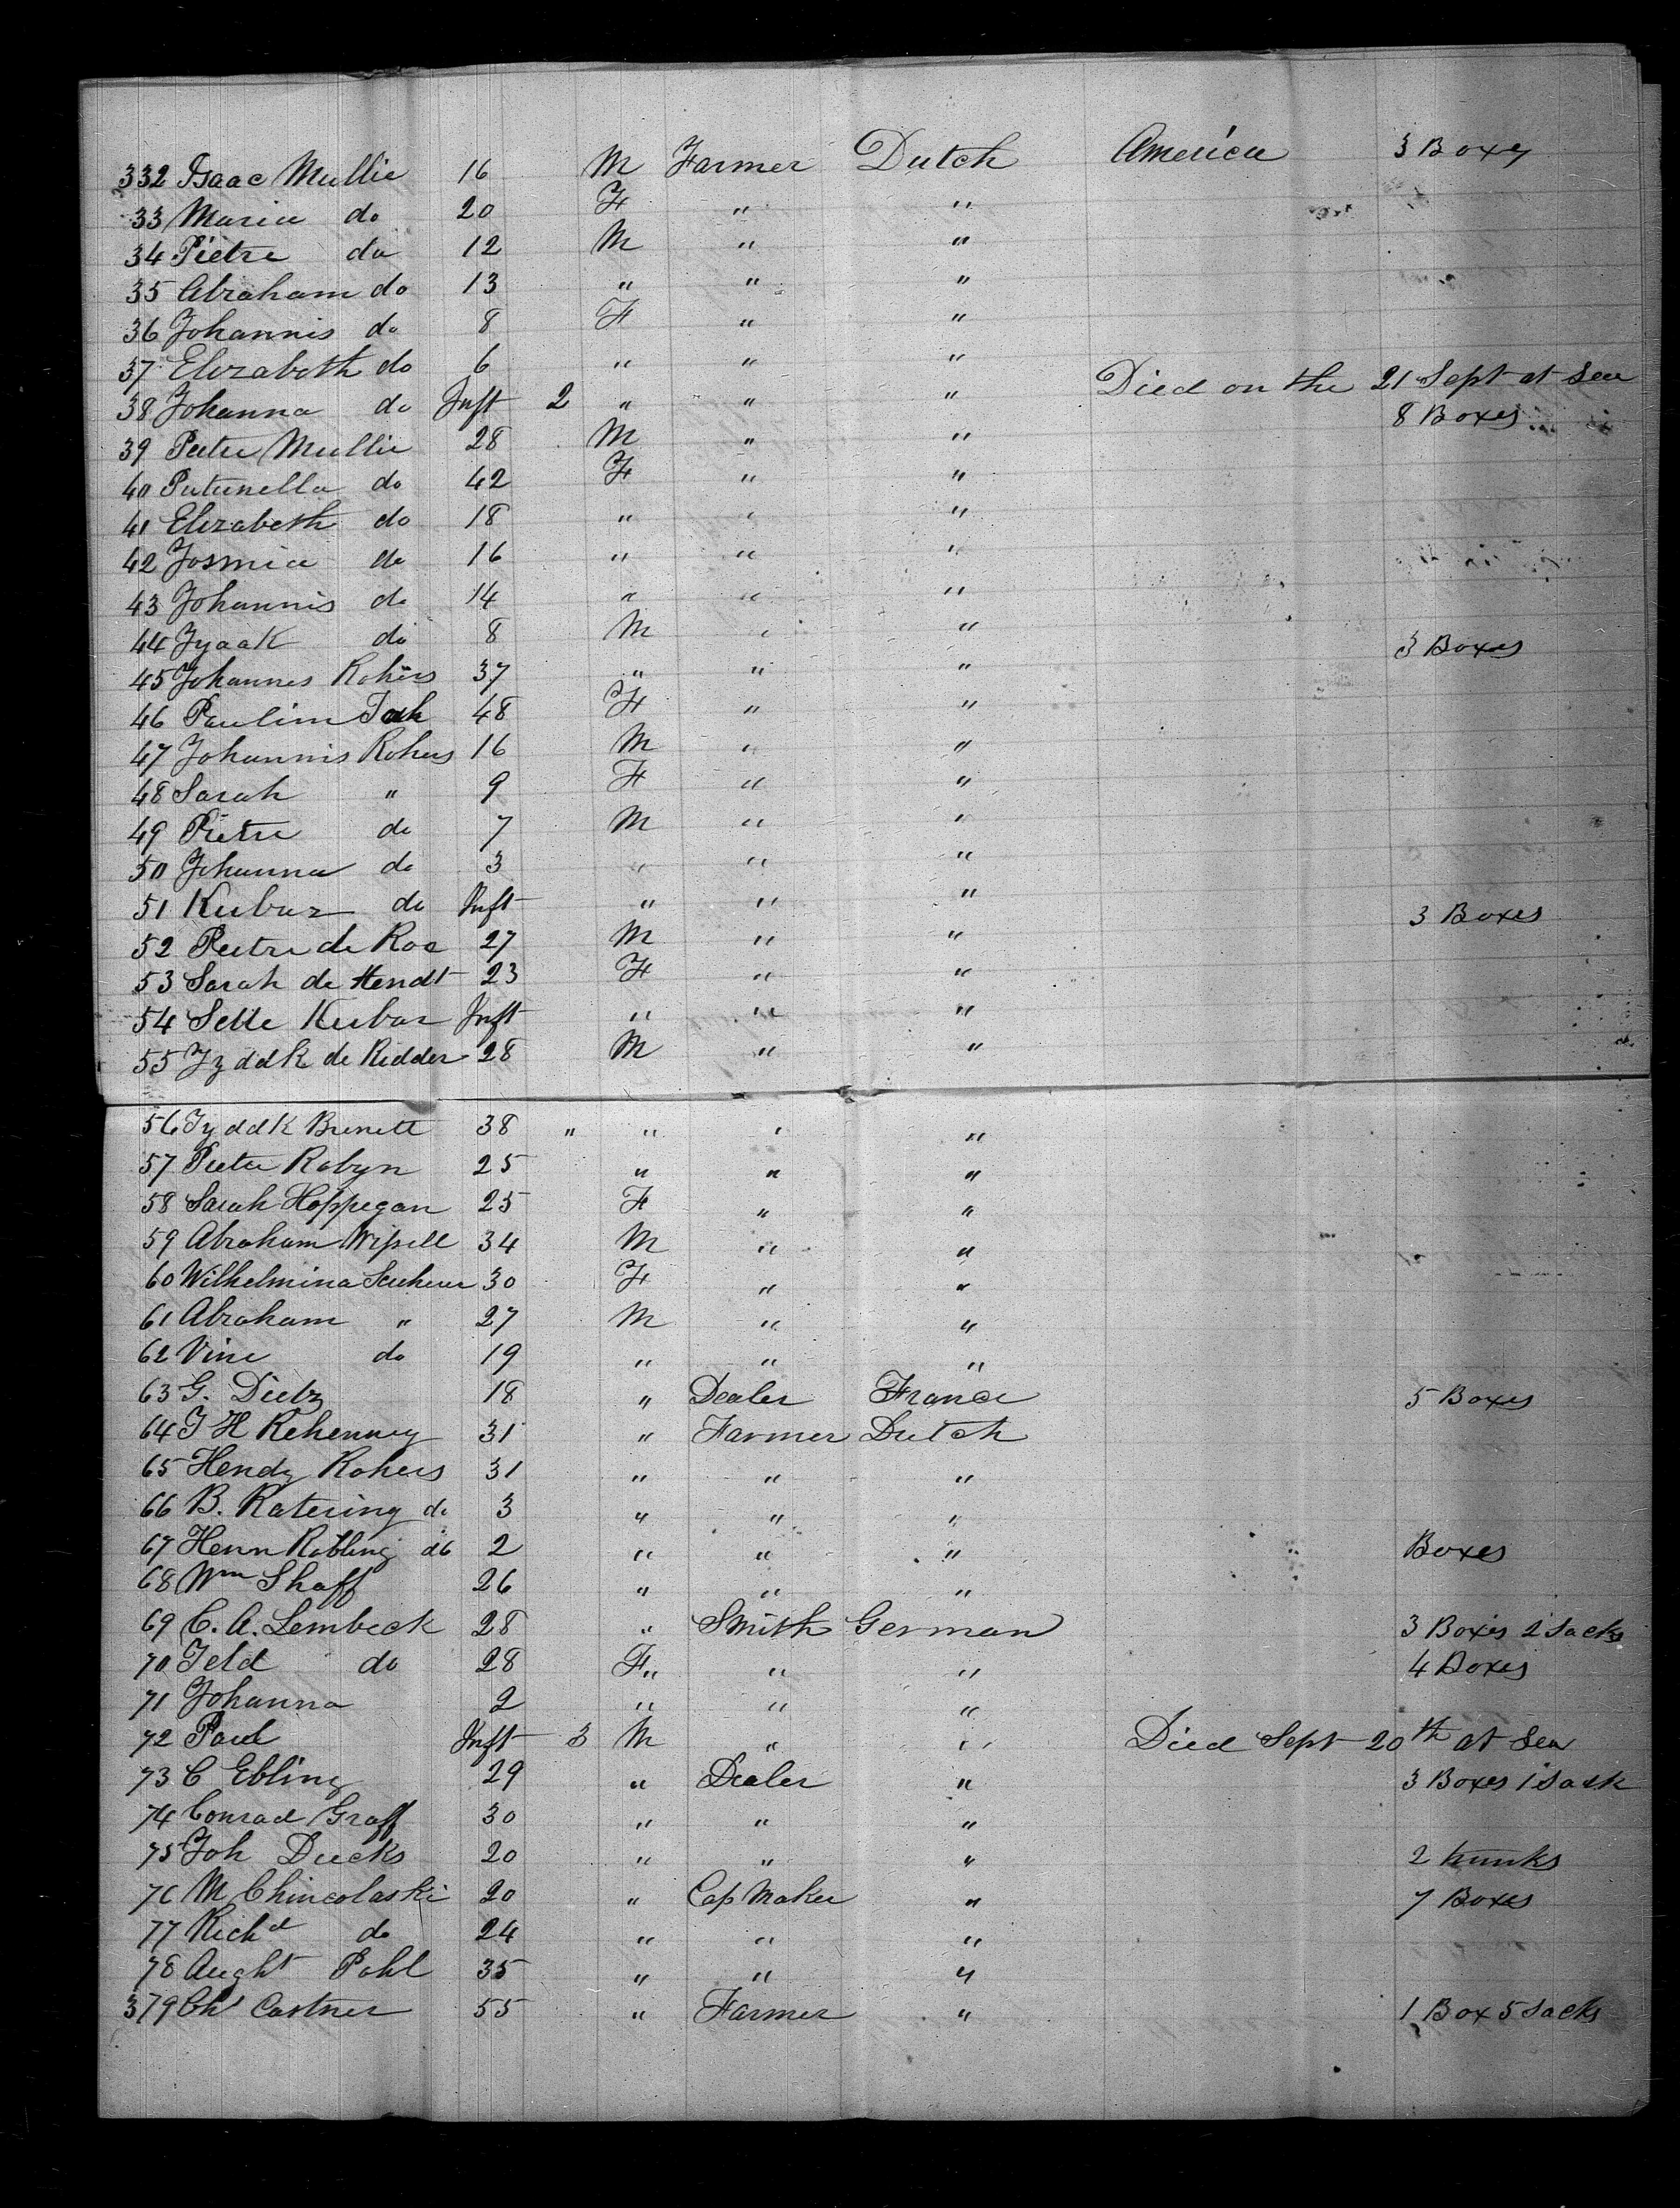 332 Isaac Mullie 16 M Farmer Dutch America 3 Boxes
33 Maria do 20 F " "
34 Pietre do 12 M " "
35 Abraham do 13 " " "
36 Johannis do 8 F " "
37 Elizabeth do 6 " " "
38 Johanna do Inft 2 " " " Died on the 21 Sept at Sea
39 Peetre Mullie 28 M " " 8 Boxes
40 Putunella do 42 F " "
41 Elizabeth do 18 " " "
42 Josmia do 16 " " "
43 Johannis do 14 " " "
44 Jyaak do 8 M " "
45 Johannes Rohers 37 " " " 3 Boxes
46 Paulim Tak 48 F " "
47 Johannis Rohers 16 M " "
48 Sarah " 9 F " "
49 Pietre do 7 M " "
50 Johanna do 3 " " "
51 Kubuz do Inft " " "
52 Peetre de Roe 27 M " " 3 Boxes
53 Sarah de Hendt 23 F " "
54 Sette Kubar Inft " " "
55 Jyddk de Ridder 28 M " "
56 Jyddk Brenett 38 " " " "
57 Peeter Robyn 25 " " "
58 Sarah Hoppegan 25 F " "
59 Abraham Wissell 34 M " "
60 Wilhelmina 30 F " "
61 Abraham " 27 M " "
62 Vine do 19 " " "
63 G. Dietz 18 " Dealer France 5 Boxes
64 J H 31 " Farmer Dutch
65 Hendy Rohers 31 " " "
66 B. Ratering do 3 " " "
67 Henn Robling do 2 " " " Boxes
68 Wm Shaff 26 " " "
69 C. A. Lembeck 28 " Smith German 3 Boxes 2 Sacks
70 Teld do 28 F " " " 4 Boxes
71 Johanna 2 " " "
72 Paul Inft 3 M " " Died Sept 20th at Sea
73 C Ebling 29 " Dealer " 3 Boxes 1 Sack
74 Conrad Graff 30 " " "
75 Joh Ducks 20 " " " 2 trunks
76 M Chincolaski 20 " Cap Maker " 7 Boxes
77 Richd do 24 " " "
78 Aught Pohl 35 " " "
379 Chs Castner 55 " Farmer " 1 Box 5 Sacks